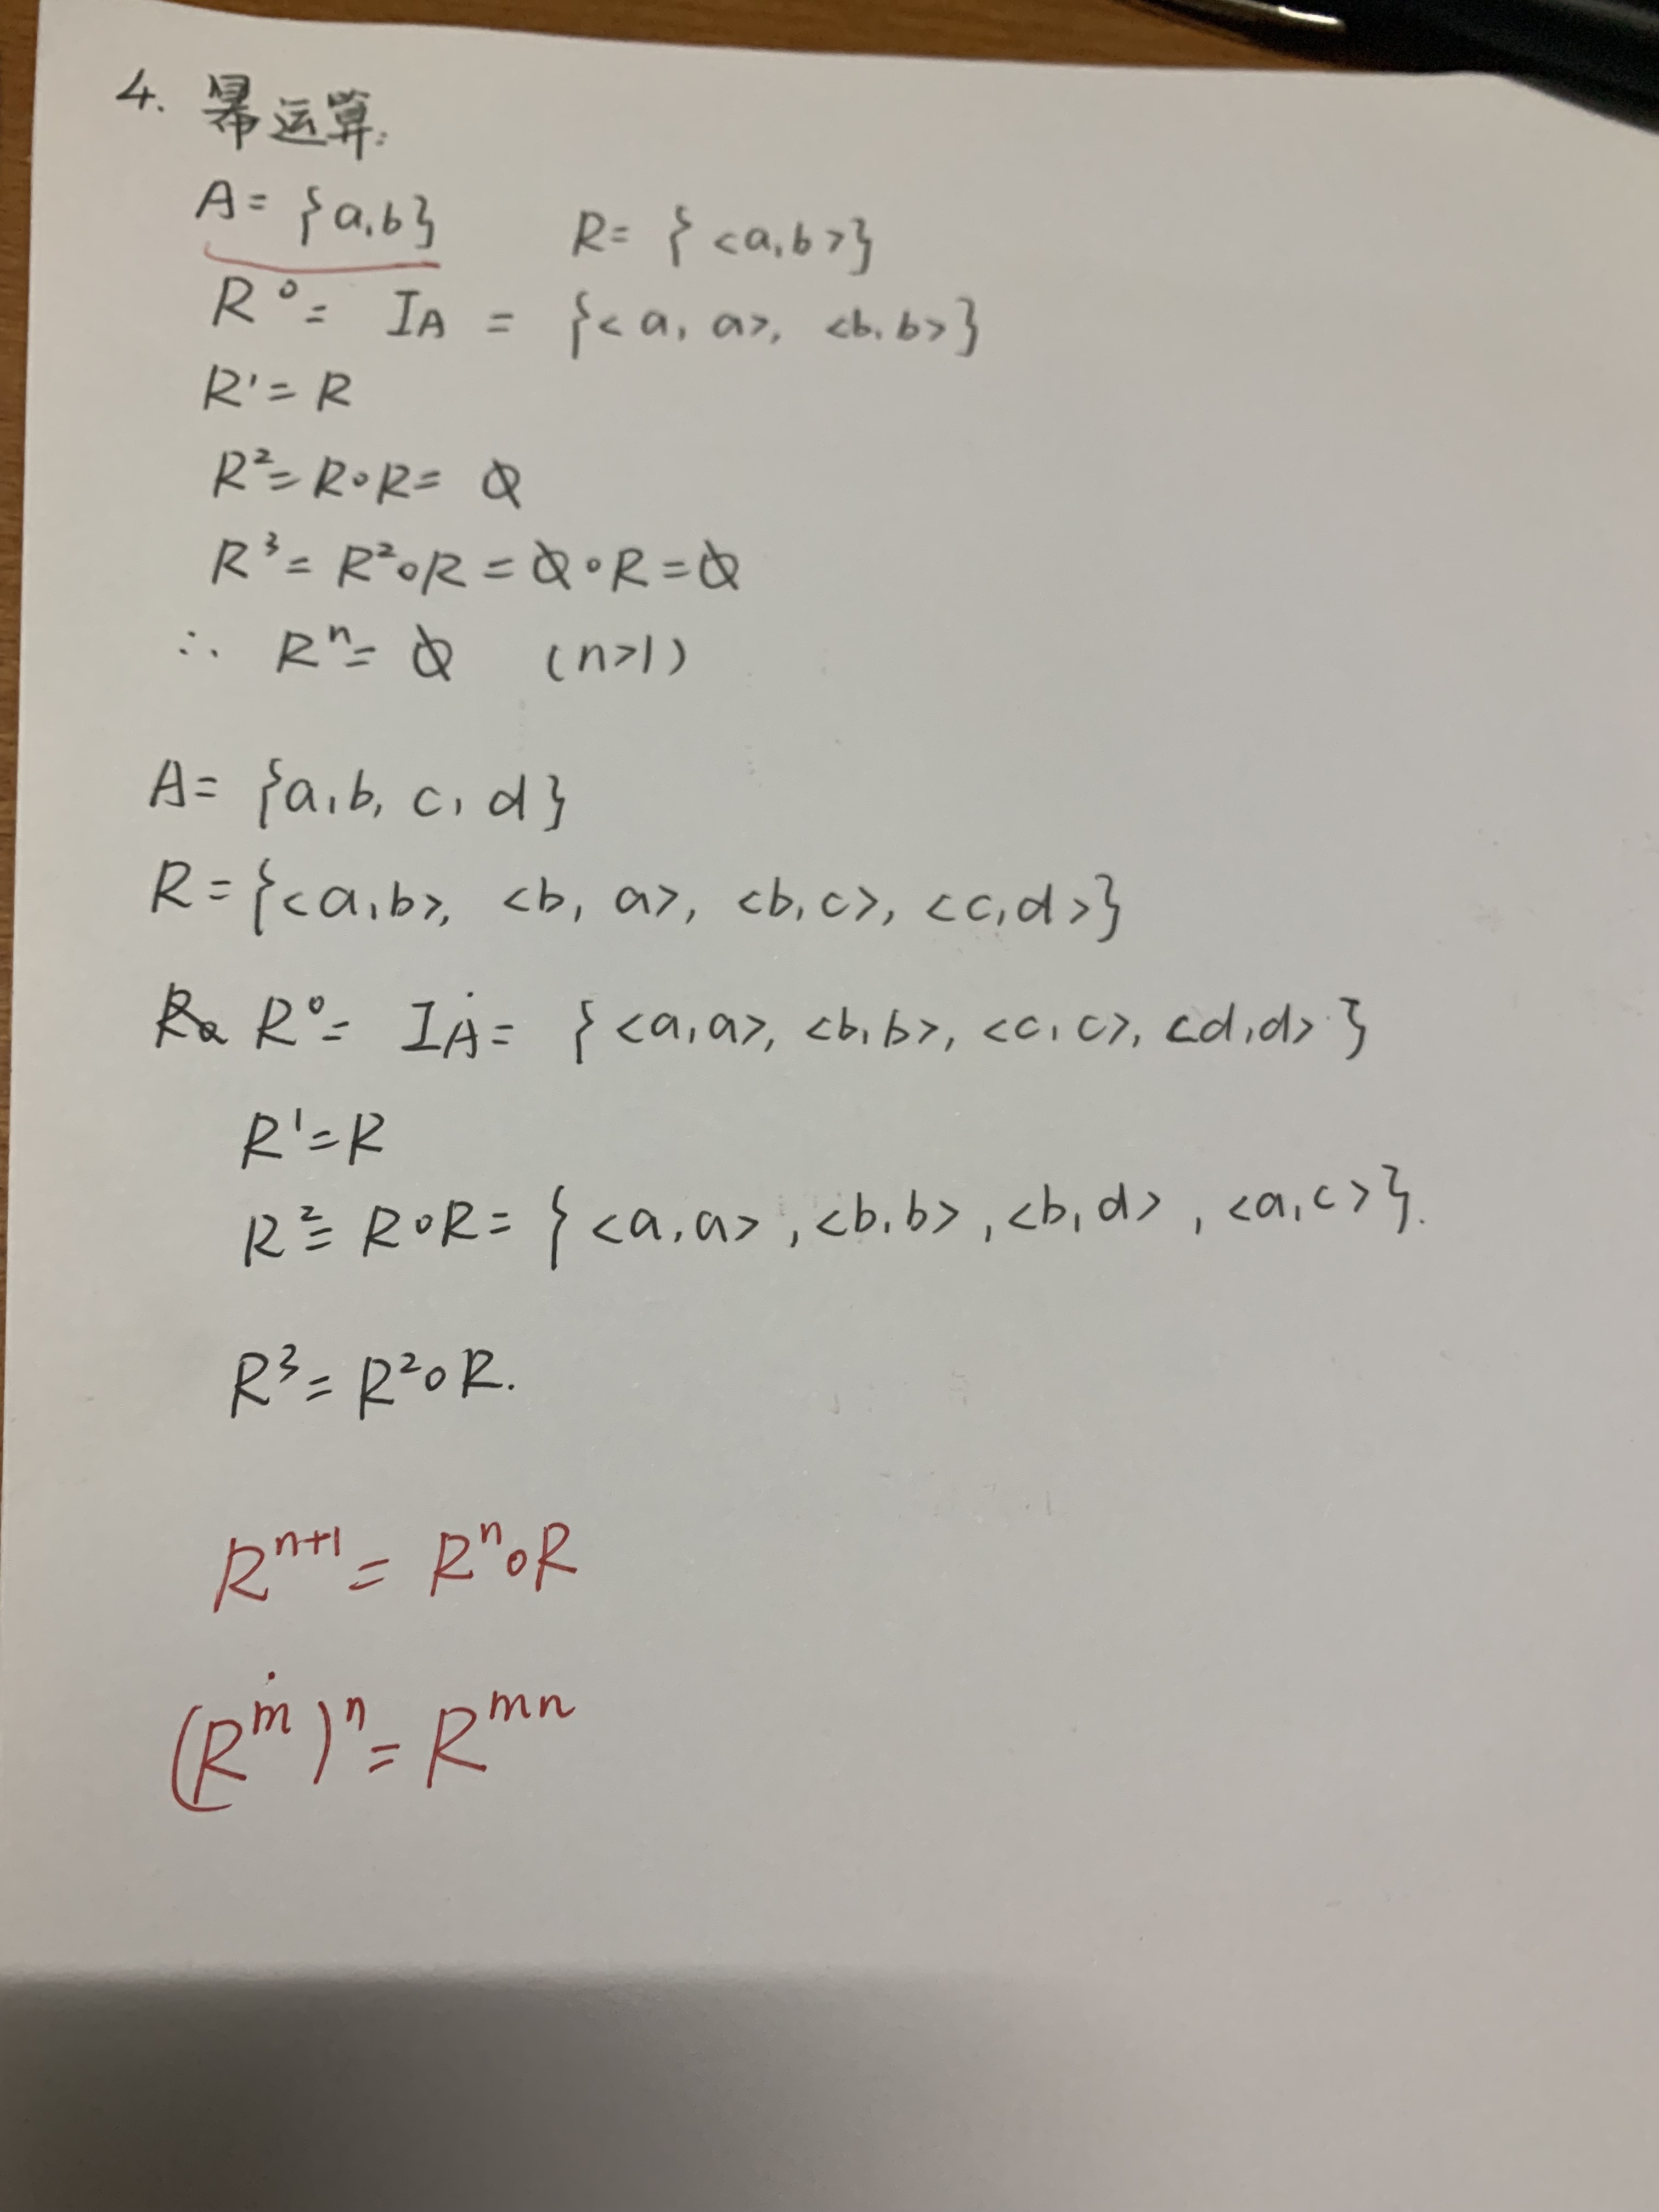 4. 幂运算:
A = {a,b}   R = {<a,b>}
R⁰ = I_A = {<a,a>, <b,b>}
R¹ = R
R² = R∘R = ∅
R³ = R²∘R = ∅∘R = ∅
∴ Rⁿ = ∅ (n>1)
A = {a,b,c,d}
R = {<a,b>, <b,a>, <b,c>, <c,d>}
R⁰ = I_A = {<a,a>, <b,b>, <c,c>, <d,d>}
R¹ = R
R² = R∘R = {<a,a>, <b,b>, <b,d>, <a,c>}.
R³ = R²∘R.
Rⁿ⁺¹ = Rⁿ∘R
(Rᵐ)ⁿ = Rᵐⁿ